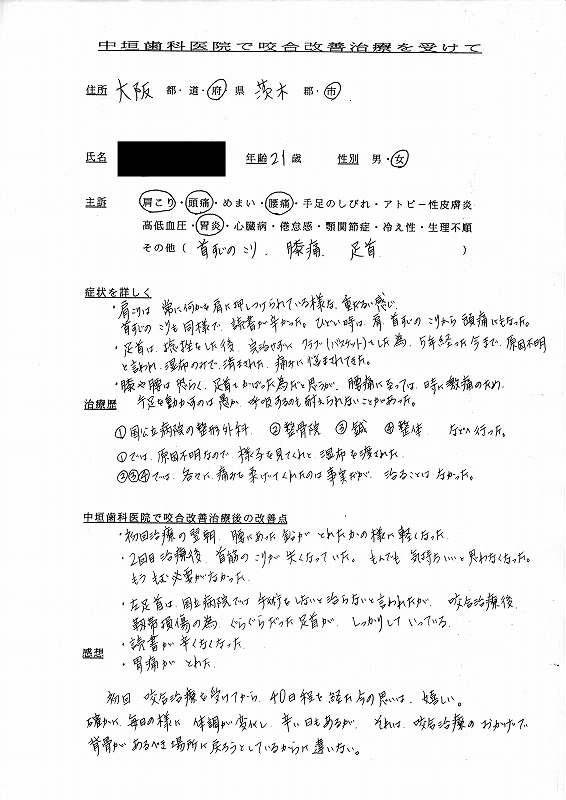 中垣歯科医院で咬合改善治療を受けて
住所 大阪 都・道・府・県 茨木 郡・市
氏名 年齢21歳 性別 男・女
主訴 肩こり・頭痛・めまい・腰痛・手足のしびれ・アトピー性皮膚炎
高低血圧・胃炎・心臓病・倦怠感・顎関節症・冷え性・生理不順
その他（首すじのこり、膝痛、足首）
症状を詳しく
・肩こりは常に何かを肩に押しつけられている様な、重だるい感じ。
首すじのこりも同様で、読書が辛かった。ひどい時は、肩、首すじのこりから頭痛にもなった。
・足首は、捻挫をした後、完治せずにクラブ（バスケット）をした為、5年経った今まで、原因不明
と言われ、湿布のみで、済まされた、痛みに悩まされてきた。
・膝や腰は恐らく、足首をかばった為だと思うが、腰痛になっては、時に激痛のため、
手足を動かすのは愚か、呼吸するのも耐えられないことがあった。
治療歴
①国公立病院の整形外科 ②整骨院 ③鍼 ④整体 などへ行った。
①では、原因不明なので、様子を見てくれと、湿布を渡された。
②③④では、各々に、痛みを柔げてくれたのは事実だが、治ることはなかった。
中垣歯科医院で咬合改善治療後の改善点
・初回治療の翌朝、腰にあった鉛がとれたかの様に軽くなった。
・2回目治療後、首筋のこりが失くなっていた。もんでも気持ちいいと思わなくなった。
もうもむ必要がなかった。
・左足首は、国立病院では手術をしないと治らないと言われたが、咬合治療後、
靭帯損傷の為、ぐらぐらだった足首が、しっかりしていっている。
・読書が辛くなくなった。
・胃痛がとれた。
感想
初回咬合治療を受けてから、40日程を経た今の思いは、嬉しい。
確かに、毎日の様に体調が変化し、辛い日もあるが、それは、咬合治療のおかげで
背骨があるべき場所に戻ろうとしているからに違いない。